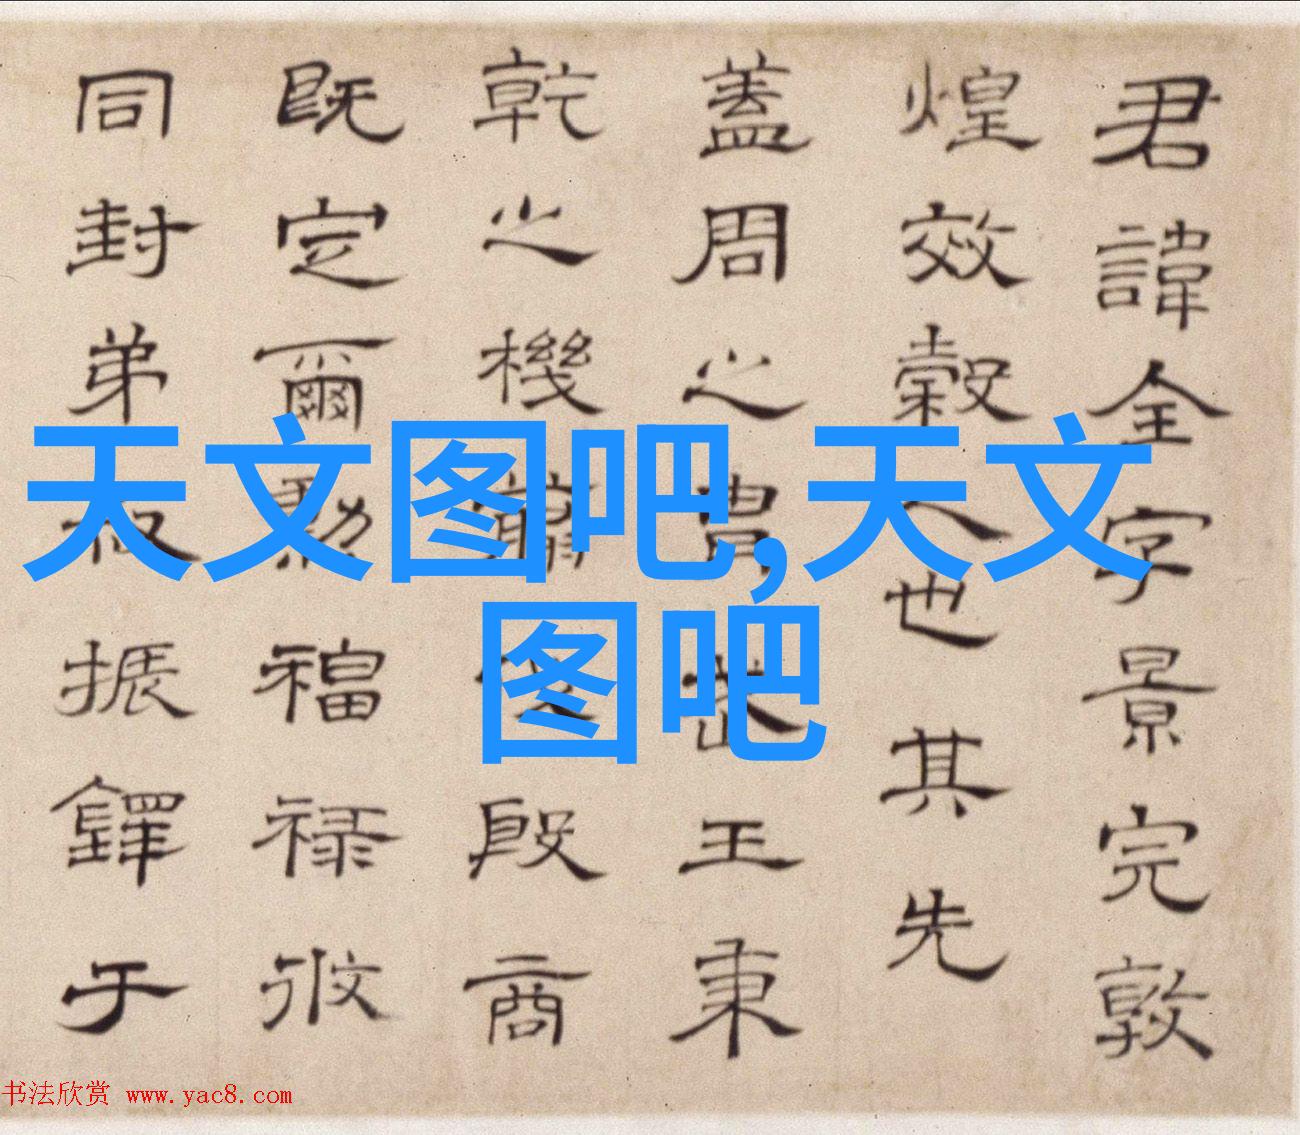 君諱全字景完敦
煌效穀人也其先
蓋周之胄武王秉
乾之機翦伐殷商
既定爾勳福祿攸
同封弟叔振鐸于
天文图吧,天文
图吧
书法欣赏 www.yac8.com